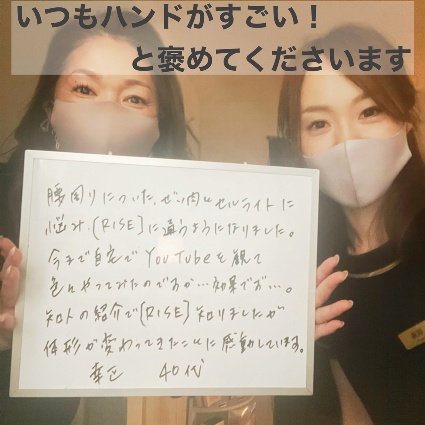 いつもハンドがすごい！
と褒めてくださいます
腰周りについた、ぜい肉とセルライトに
悩み、[RISE]に通うようになりました。
今まで自宅でYouTubeを観て
色々やってみたのですが…効果でず…。
知人の紹介で[RISE]知りましたが
体形が変わってきたことに感動しています。
40代